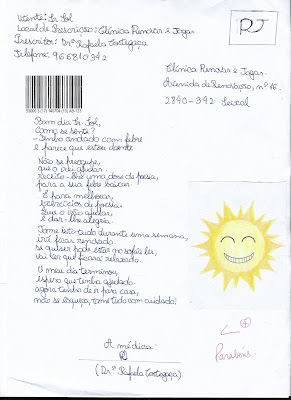 Utente: Sr. Sol
Local de Prescrição: Clínica Remoçar e Jogar
Prescritor: Dr.ª Rafaela Cortegaça
Telefone: 966810342
RJ
Clínica Remoçar e Jogar
Avenida da Remoçação, nº 16
2840-342 Seixal
Bom dia Sr. Sol,
Como se sente?
- Tenho andado com febre
e parece que estou doente
Não se preocupe,
que o vai ajudar.
Receito-lhe uma dose de poesia,
para a sua febre baixar.
E para melhorar,
exercícios de poesia.
Que o vão ajudar,
e dar-lhe alegria.
Tome isto tudo durante uma semana,
irá ficar
se quiser pode estar no sofá e ler,
vai ver que ficará relaxado.
O meu dia terminou,
espero que tenha ajudado.
agora tenho de ir para casa,
não se esqueça, tome tudo com cuidado!
A médica:
(Dr.ª Rafaela Cortegaça)
Parabéns.